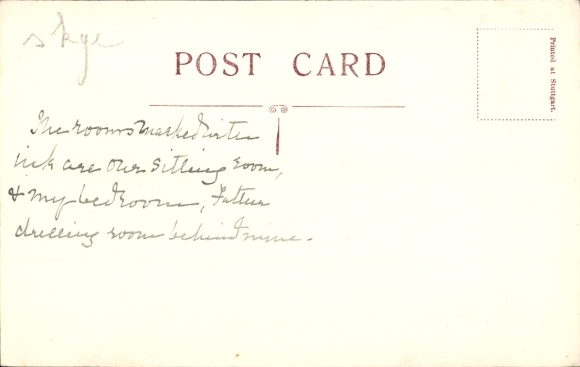 skye
POST CARD
Printed at Stuttgart.
The rooms marked with
ink are our sitting room,
& my bedroom, Father
dressing room behind mine.